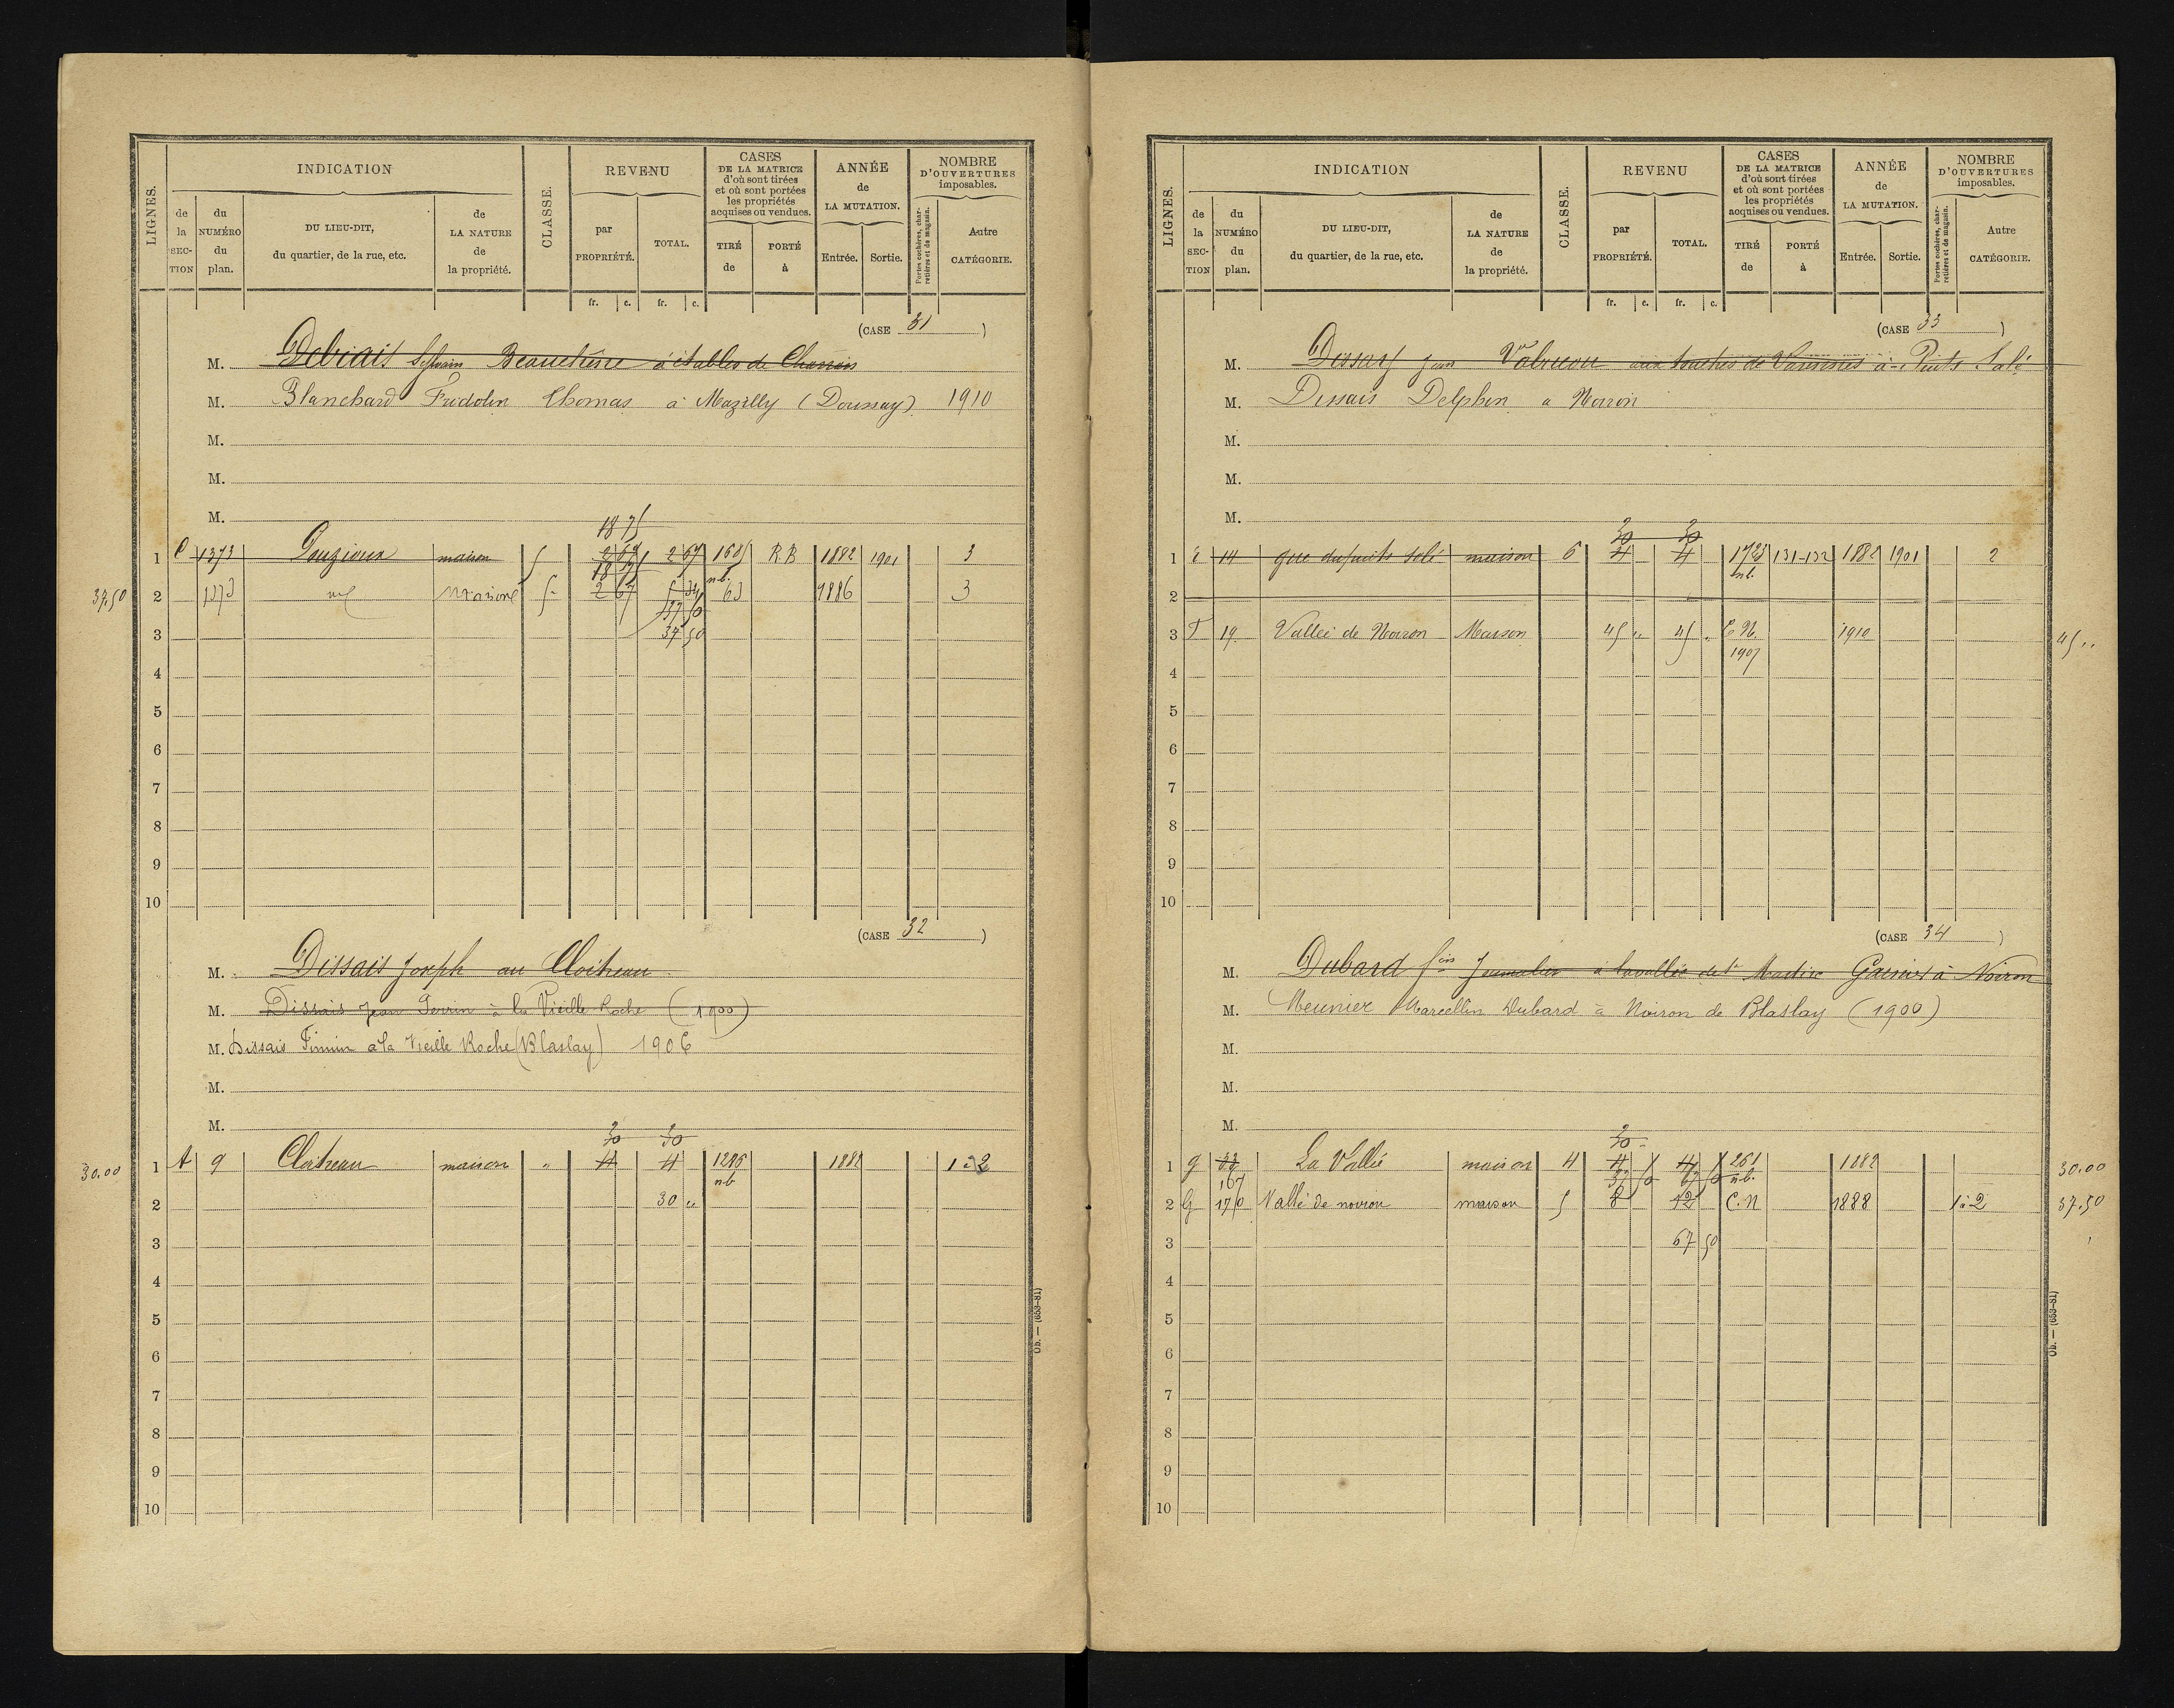 LIGNES.
INDICATION
de la SECTION
du NUMÉRO du plan.
DU LIEU-DIT, du quartier, de la rue, etc.
de LA NATURE de la propriété.
CLASSE.
REVENU
par PROPRIÉTÉ.
TOTAL.
CASES DE LA MATRICE d'où sont tirées et où sont portées les propriétés acquises ou vendues.
TIRÉ de
PORTÉ à
ANNÉE de LA MUTATION.
Entrée.
Sortie.
NOMBRE D'OUVERTURES imposables.
Portes cochères, charretières et de magasin.
Autre CATÉGORIE.
fr. c. fr. c.
(CASE 31)
M. Debiais Sylvain Beauchêne à étables de
M. Blanchard Fridolin Thomas à Mazilly (Doussay) 1910
M.
M.
M.
18 75
1 C 1373 Gouzioux maison 5 2 67 2 67 R.B 1882 1901 3
18 75 n.b.
37,50 2 1373 maison 5 2 67 5 34 63 1886 3
37 50
3 37 50
4
5
6
7
8
9
10
(CASE 32)
M. Dissais Joseph au Cloitreau
M. Dissais Jean à la Vieille Roche (1900)
M. Dissais Firmin à la Vieille Roche (Blaslay) 1906
M.
M.
30 30
30.00 1 A 9 Cloitreau maison " 4 4 1286 1882 1 à 2
n.b
2 30 "
3
4
5
6
7
8
9
10
Ob. — (653-81)
LIGNES.
INDICATION
de la SECTION
du NUMÉRO du plan.
DU LIEU-DIT, du quartier, de la rue, etc.
de LA NATURE de la propriété.
CLASSE.
REVENU
par PROPRIÉTÉ.
TOTAL.
CASES DE LA MATRICE d'où sont tirées et où sont portées les propriétés acquises ou vendues.
TIRÉ de
PORTÉ à
ANNÉE de LA MUTATION.
Entrée.
Sortie.
NOMBRE D'OUVERTURES imposables.
Portes cochères, charretières et de magasin.
Autre CATÉGORIE.
fr. c. fr. c.
(CASE 33)
M. Jean aux touches de à Puits Salé
M. Dissais Delphin a Noiron
M.
M.
M.
30 30
1 14 du puits salé maison 6 4 4 1725 131-132 1882 1901 2
n.b.
2
3 F 19 Vallée de Noiron Maison 45 " 45 " C.N. 1910 45 "
1907
4
5
6
7
8
9
10
(CASE 34)
M. Dubard fois Journalier à la vallée de St Martin à Noiron
M. Meunier Marcellin Dubard à Noiron de Blaslay (1900)
M.
M.
M.
30
1 G La Vallée maison 4 4 4 261 1882 30.00
167 37 50 67 50 n.b.
2 G 170 Vallé de noiron maison 5 8 12 C.N 1888 1 à 2 37.50
3 67 50
4
5
6
7
8
9
10
Ob. — (653-81)